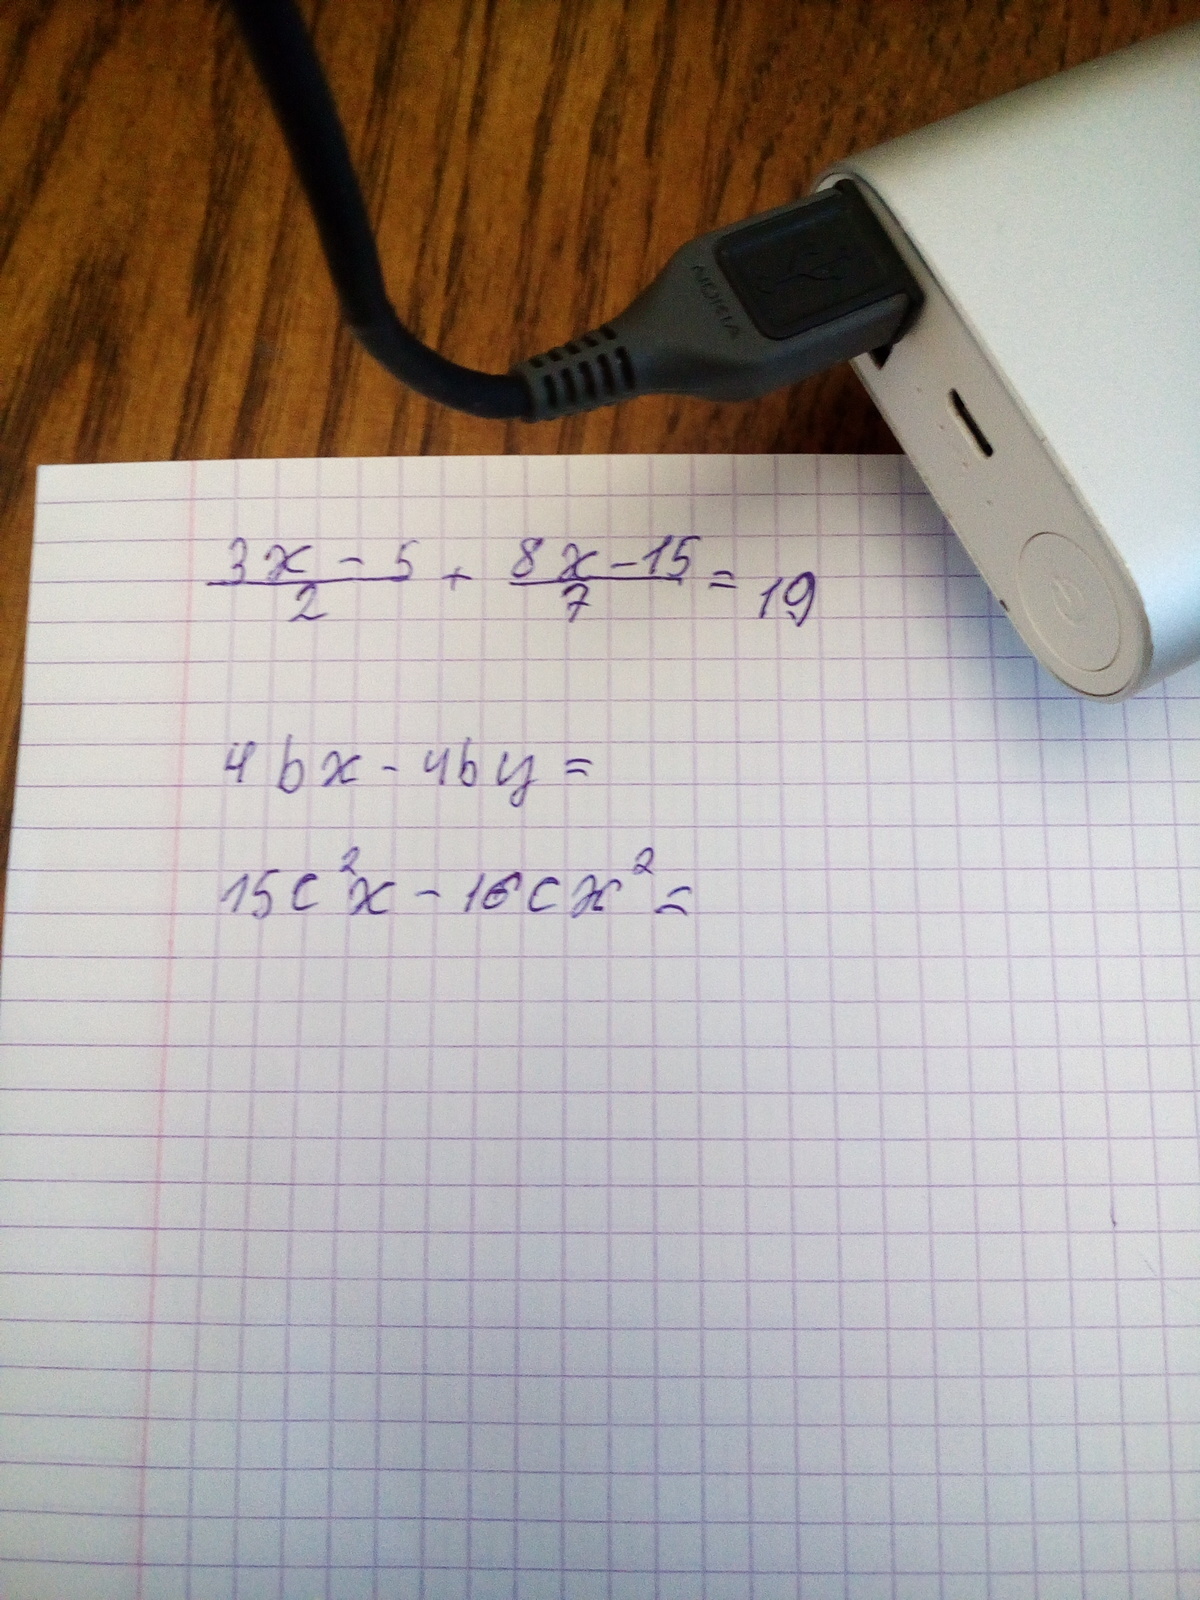 NOKIA
3x - 5 / 2 + 8x - 15 / 7 = 19
4bx - 4by =
15c²x - 16cx² =